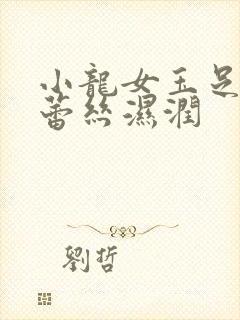 小龍女玉足
蕾絲濕潤
劉哲